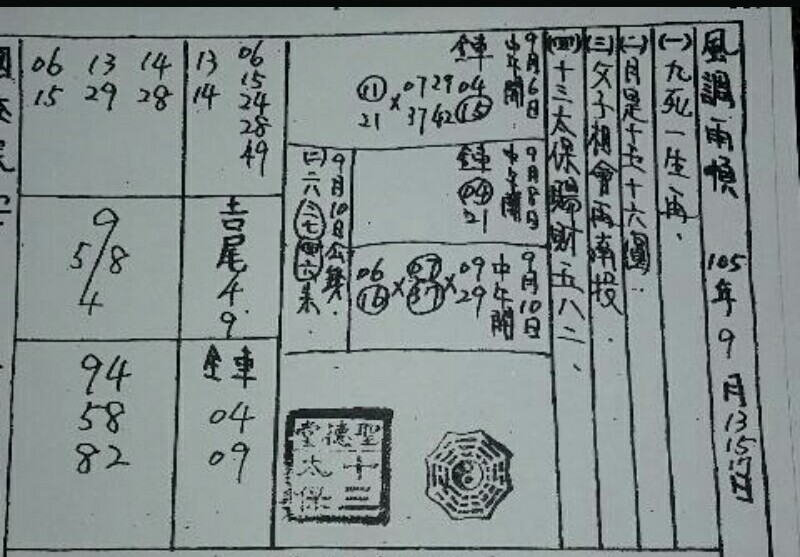 風調雨順 105年9月13 15 17日
(一)九死一生再.
(二)月是十五十六圓.
(三)父子相會再南投.
(四)十三太保賜財五八二.
9月6日
中午開
全車
07 29 04
⑪ × 37 42 ⑮
21
9月8日
中午開
全車
④
21
9月10日
中午開
09
29
×
07
37
×
06
16
9月10日公錄
(二)二六三七四六來.
06
13 15
14 24
28
49
吉尾49
全車
04
09
06 13 14
15 29 28
9
5/8
4
94
58
82
聖德堂
十三
太保